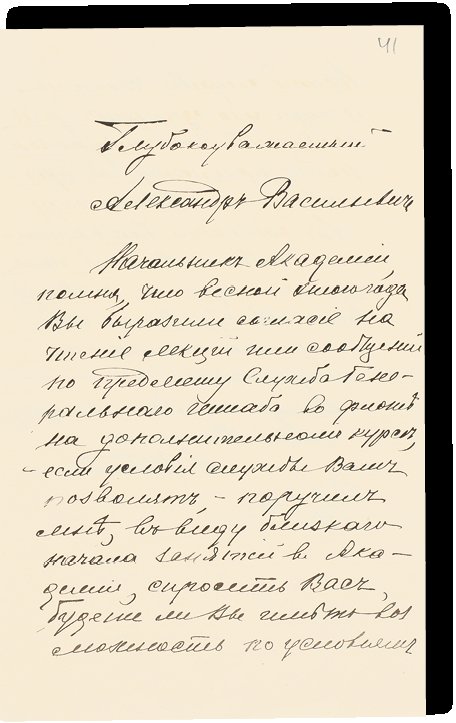 41
Глубокоуважаемый
Александръ Васильевичъ
Начальникъ Академіи,
помня, что весной этого года
Вы выразили согласіе на
чтеніе лекцій или сообщеній
по предмету Служба Гене-
ральнаго Штаба во флотѣ
на дополнительномъ курсѣ,
- если условія службы Вамъ
позволятъ, - поручилъ
мнѣ, въ виду близкаго
начала занятій въ Ака-
деміи, спросить Васъ,
будете ли Вы имѣть воз
можность по условіямъ